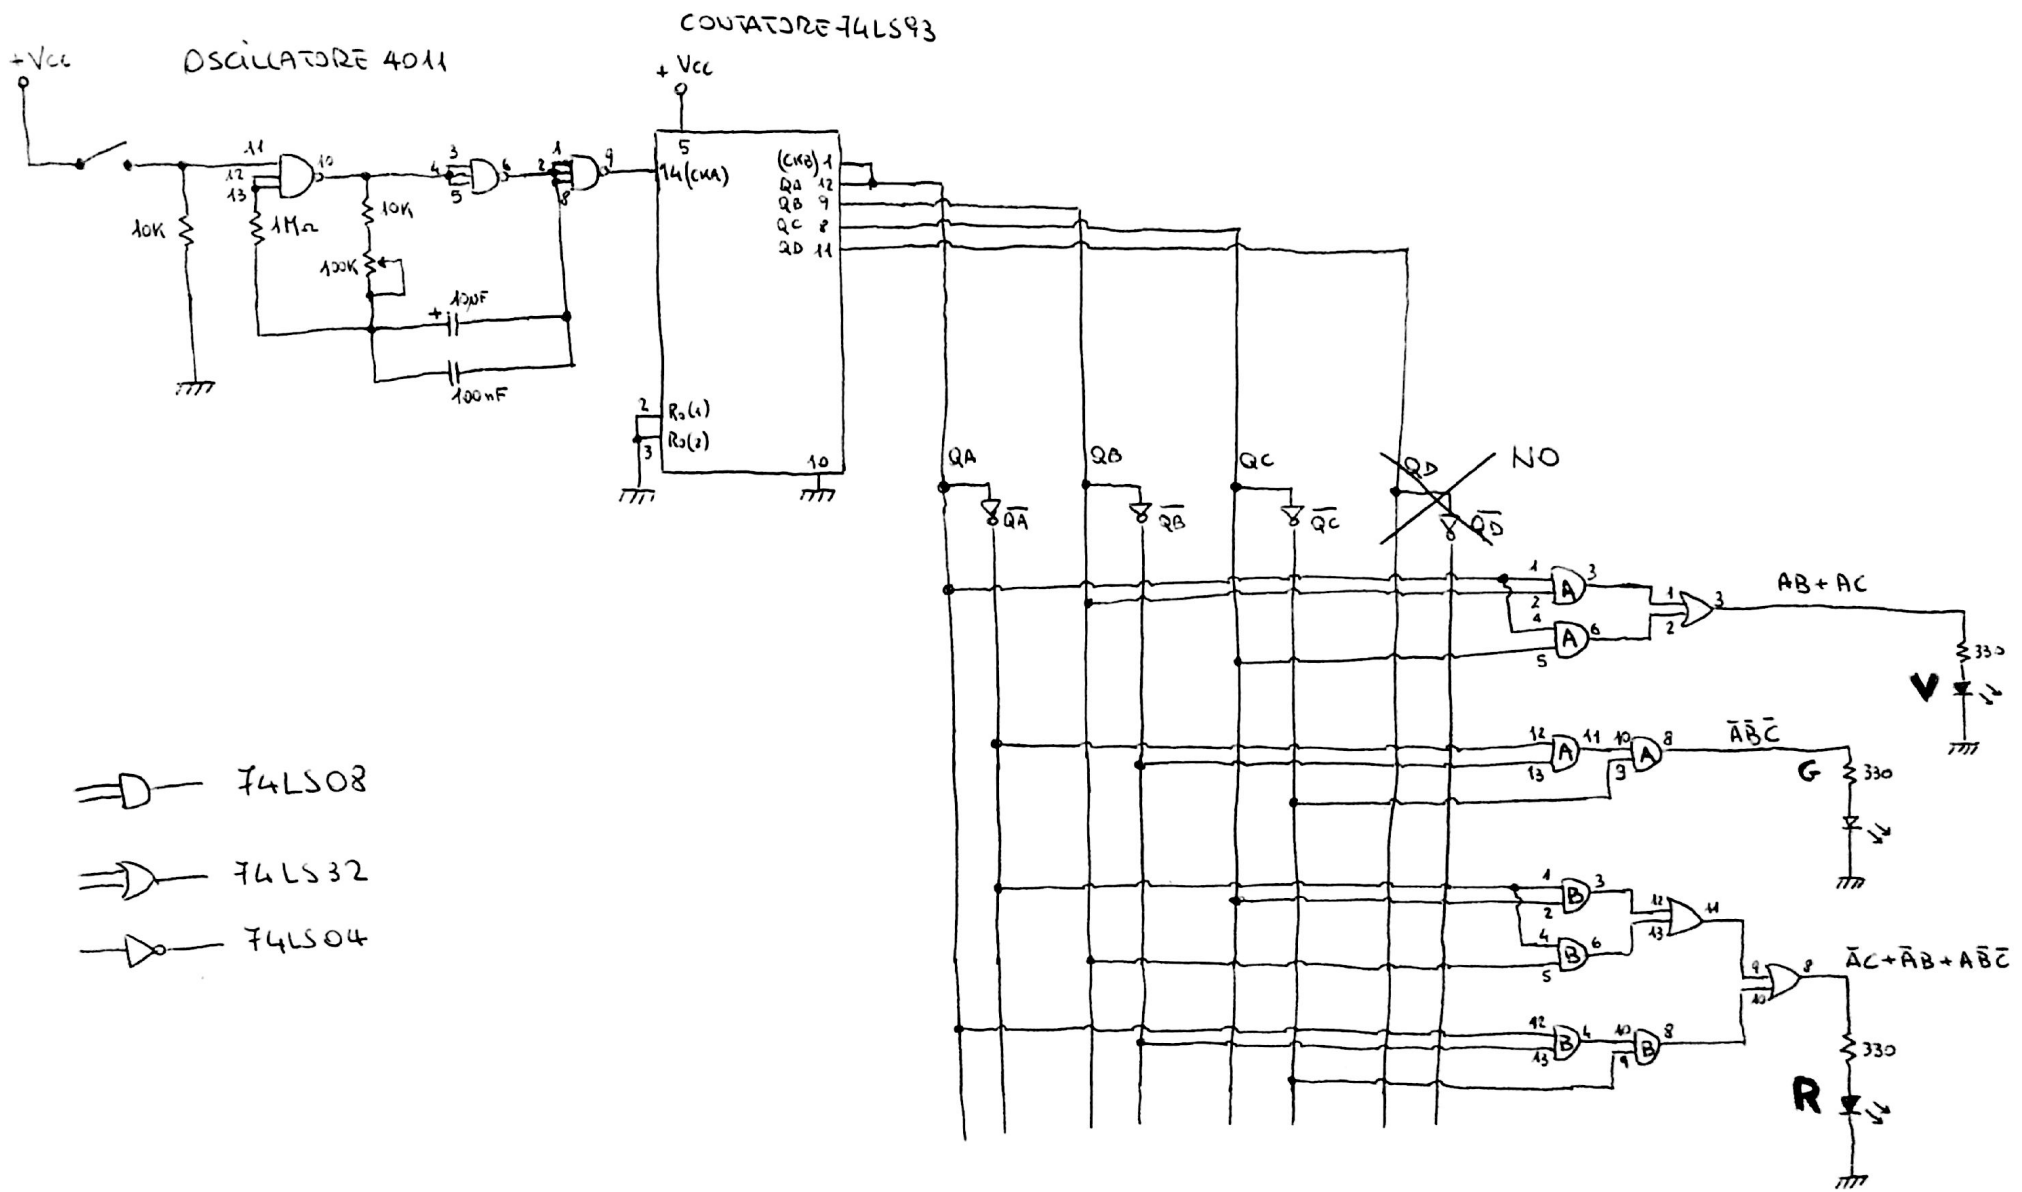 CONTATORE 74LS93
OSCILLATORE 4011
+Vcc
+ Vcc
11
12
13
10
3
4
5
6
1
2
8
9
10K
1MΩ
10K
100K
10µF
+
100nF
5
14(CKA)
(CKB) 1
QA 12
QB 9
QC 8
QD 11
2 R0(1)
3 R0(2)
10
QA
QB
QC
QD
NO
Q̅A̅
Q̅B̅
Q̅C̅
Q̅D̅
1
2
A
3
4
5
A
6
1
2
3
AB + AC
330
V
12
13
A
11
10
9
A
8
A̅ B̅ C̅
G
330
1
2
B
3
4
5
B
6
12
13
11
9
10
8
A̅C + A̅B + AB̅C̅
12
13
B
4
10
9
B
8
330
R
74LS08
74LS32
74LS04